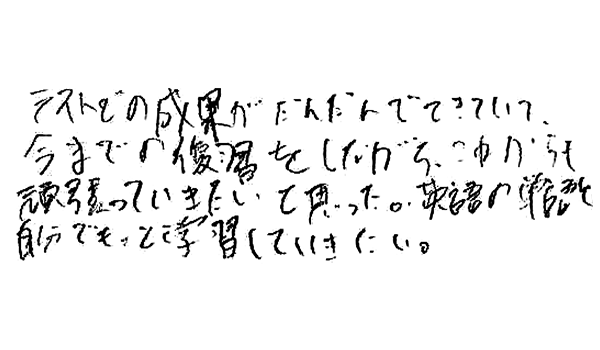 テストでの成果がだんだんでてきていて、
今までの復習をしながら、これからも
頑張っていきたいと思った。英語の単語を
自分でもっと学習していきたい。